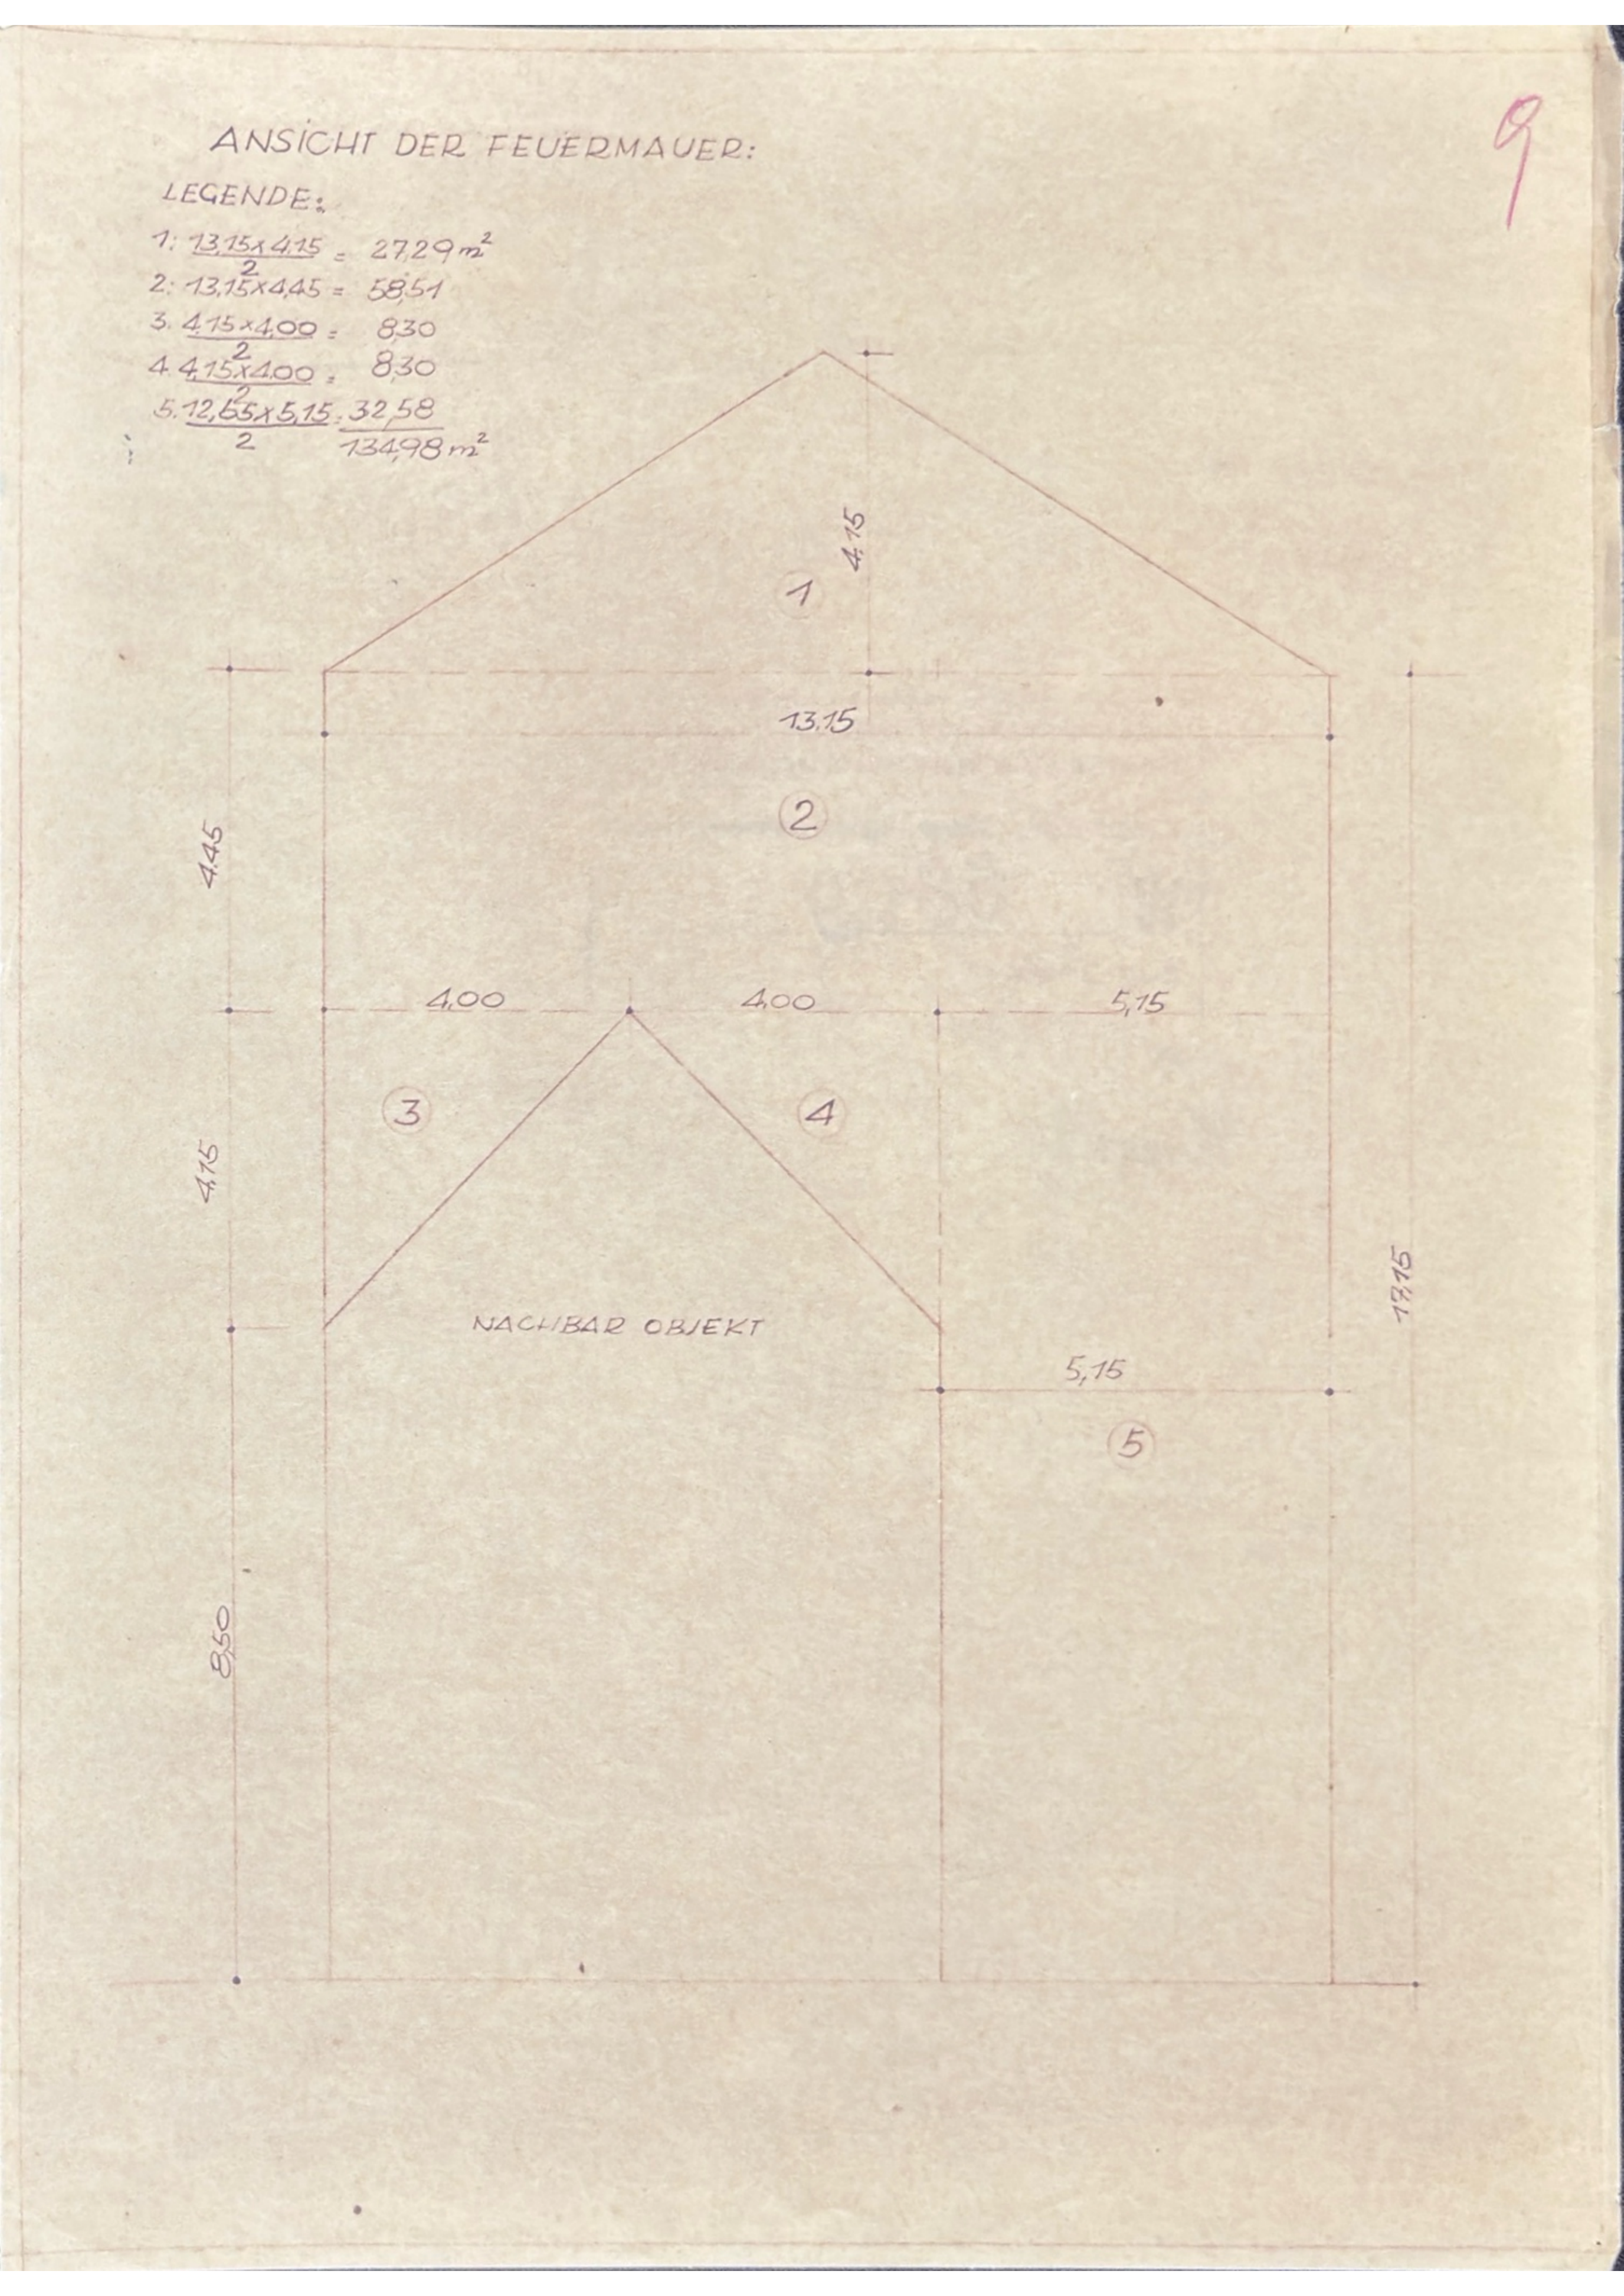 9
ANSICHT DER FEUERMAUER:
LEGENDE:
1: 13,15x4,15 = 27,29 m²
2
2: 13,15x4,45 = 58,51
3. 4,15x4,00 = 8,30
2
4. 4,15x4,00 = 8,30
2
5. 12,65x5,15 = 32,58
2
134,98 m²
4,15
1
13,15
2
4,45
4,00
4,00
5,15
3
4
4,15
17,15
NACHBAR OBJEKT
5,15
5
8,50